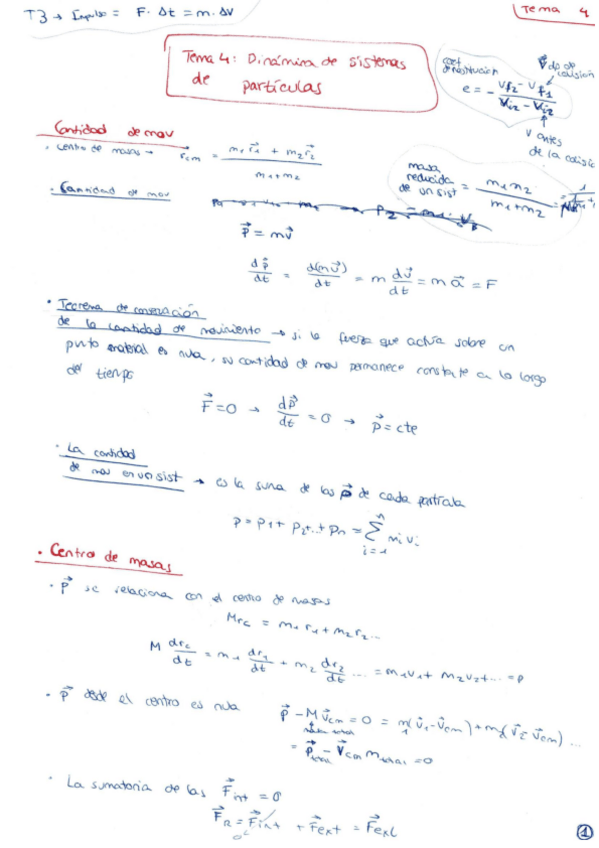 T3 → Impulso = F · Δt = m · Δv
Tema 4
Tema 4: Dinámina de sistemas
de partículas
coef
de restitución
e = - (Vf2 - Vf1) / (Vi2 - Vi2)
V dp de
colisión
V antes
de la colisió
Cantidad de mov
· Centro de masas → r⃗cm = (m1 r⃗1 + m2 r⃗2) / (m1 + m2)
masa
reducida
de un sist = m1 m2 / (m1 + m2) =
· Cantidad de mov
p⃗ = m v⃗
dp⃗/dt = d(m v⃗)/dt = m dv⃗/dt = m a⃗ = F
· Teorema de conservación
de la cantidad de movimiento → si la fuerza que actúa sobre un
punto material es nula, su cantidad de mov permanece constante a lo largo
del tiempo
F⃗ = 0 → dp⃗/dt = 0 → p⃗ = cte
· La cantidad
de mov en un sist → es la suma de las p⃗ de cada partícula
p = p1 + p2 + ... + pn = Σ(i=1, n) mi vi
· Centro de masas
· p⃗ se relaciona con el centro de masas
M rc = m1 r1 + m2 r2 ...
M drc/dt = m1 dr1/dt + m2 dr2/dt ... = m1 v1 + m2 v2 + ... = p
· p⃗ desde el centro es nula p⃗ - M v⃗cm = 0 = m1(v⃗1 - v⃗cm) + m2(v⃗2 - v⃗cm) ...
= p⃗total - v⃗cm mtotal = 0
· La sumatoria de las F⃗int = 0
F⃗R = F⃗int + F⃗ext = F⃗ext
0
1